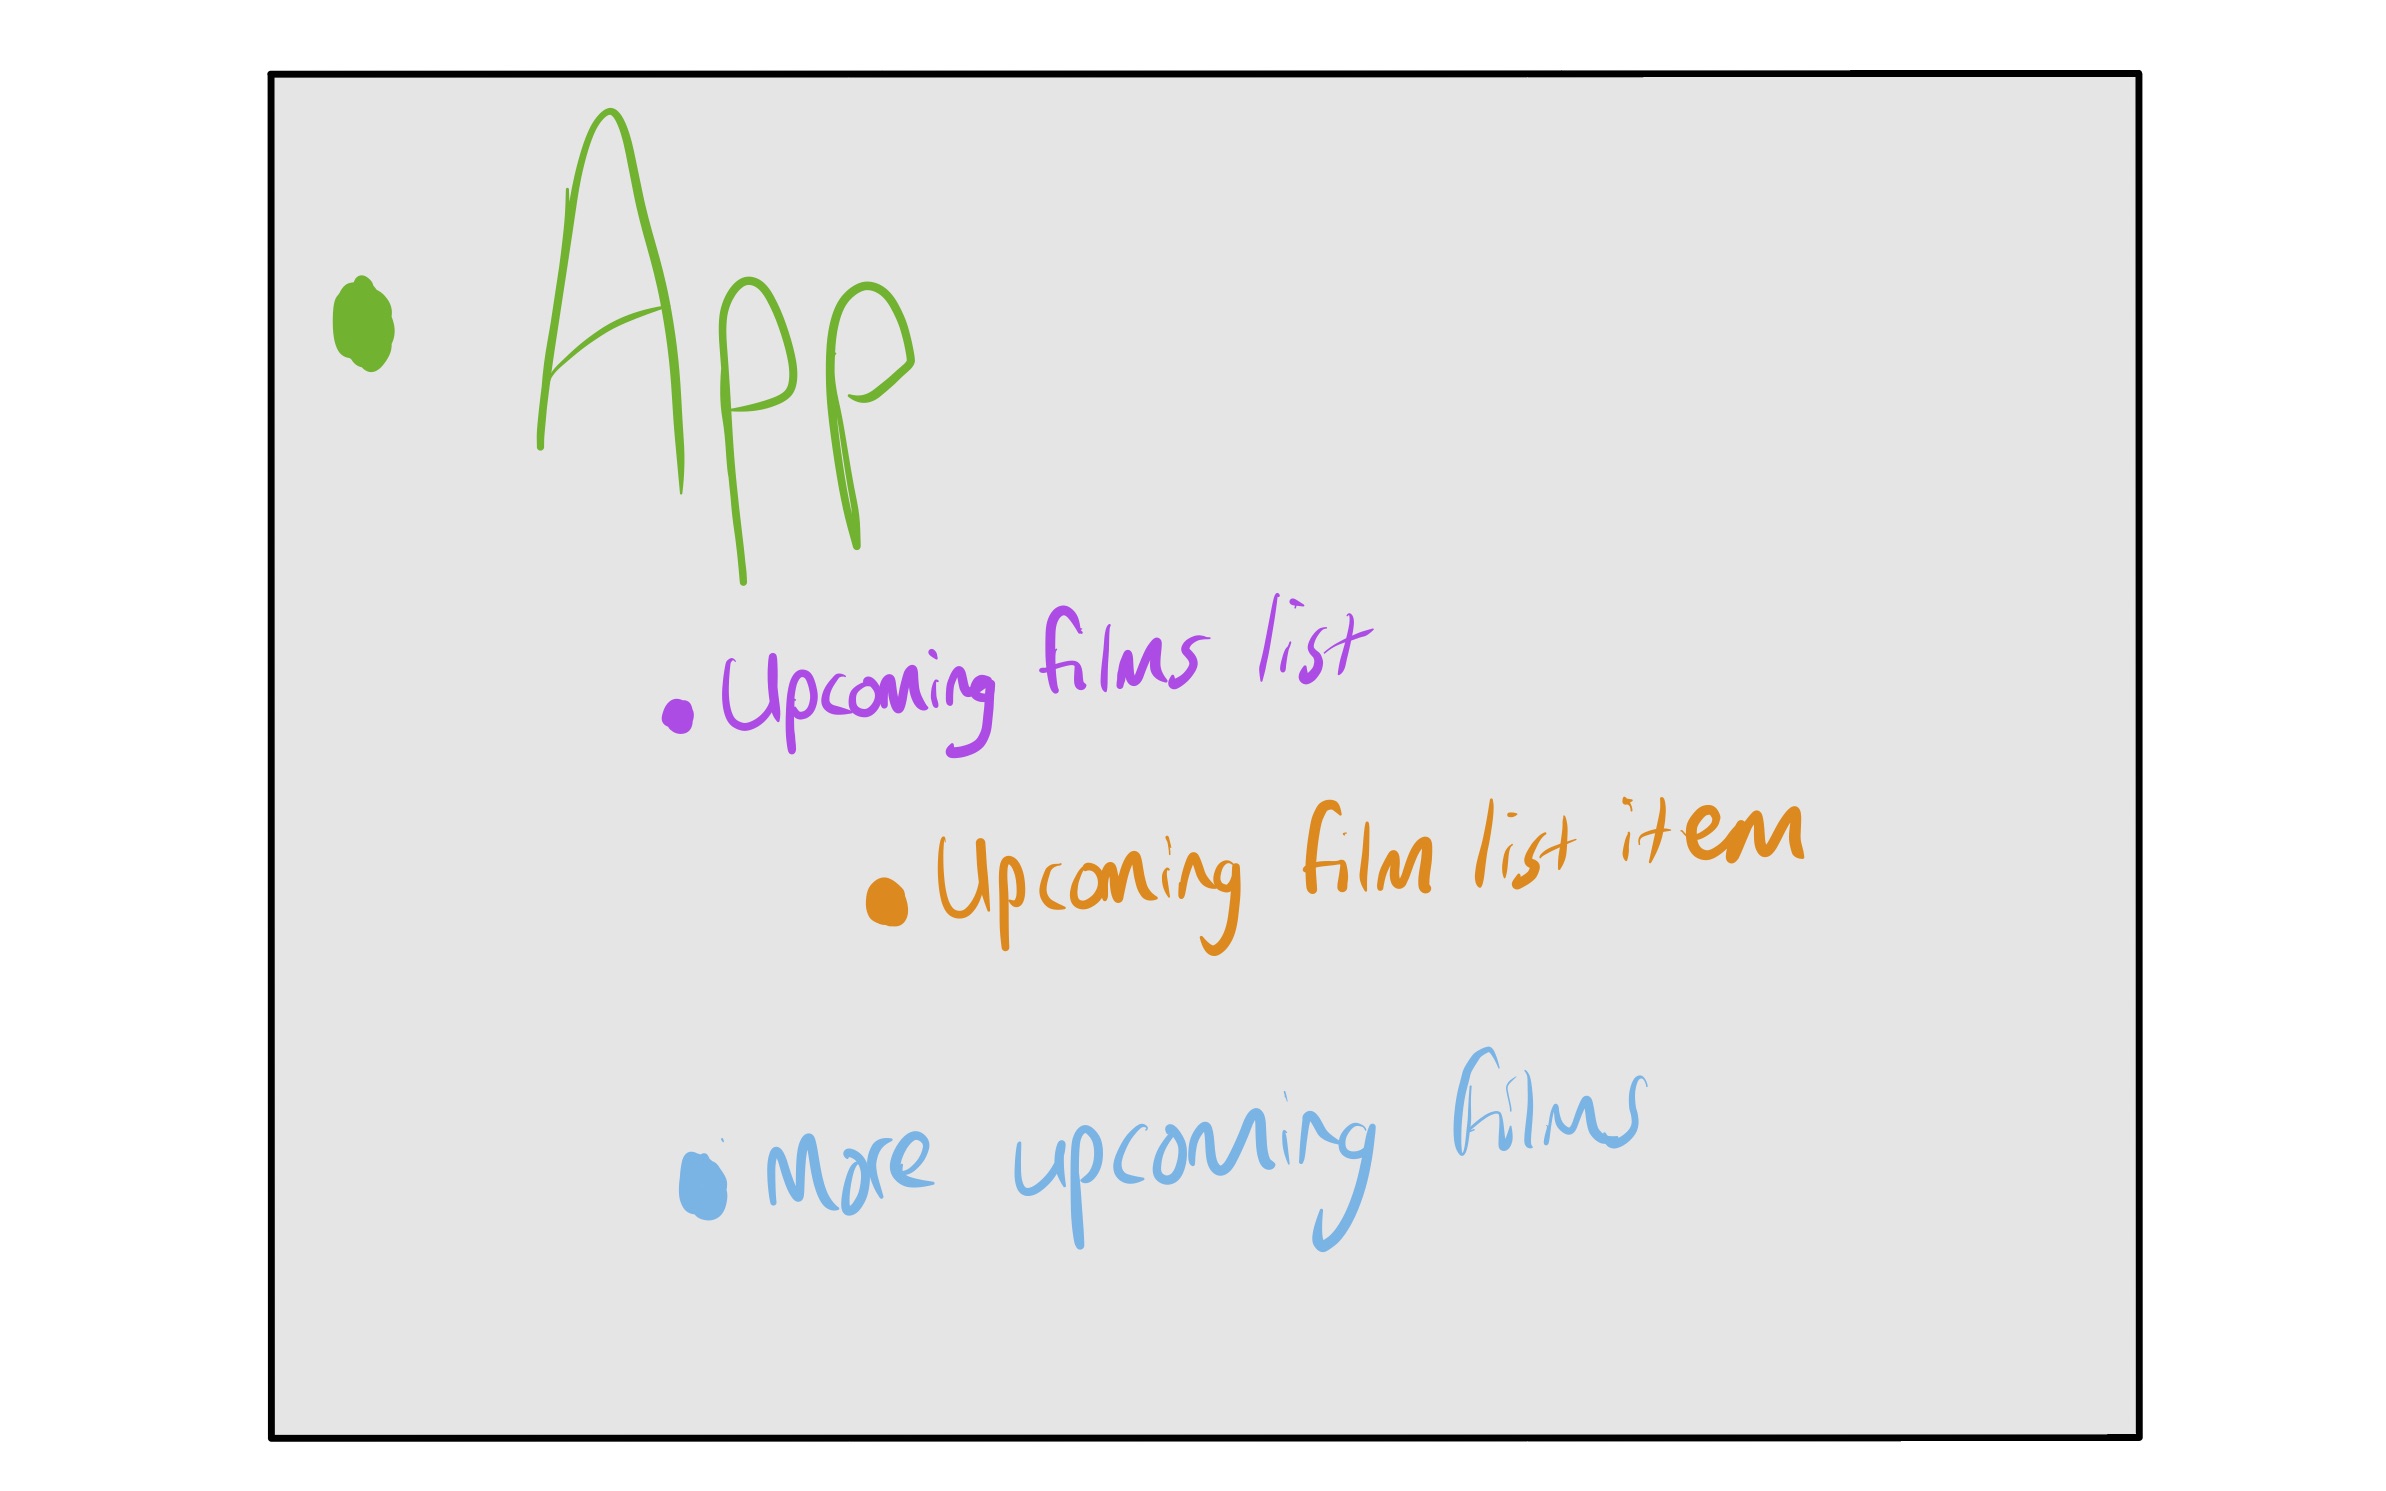 App
Upcoming films list
Upcoming film list item
More upcoming films